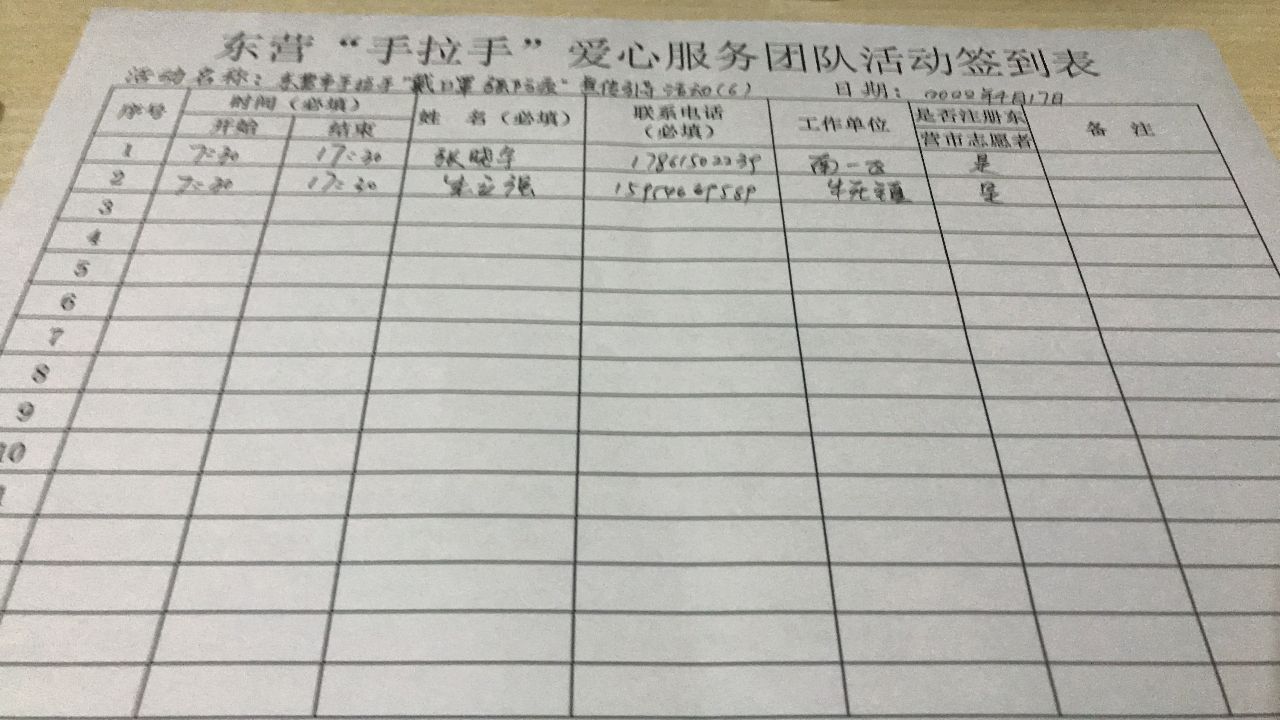 东营“手拉手”爱心服务团队活动签到表
活动名称：东营市手拉手“戴口罩 强防疫”宣传引导活动(6) 日期：2022年4月17日
序号 时间（必填） 姓 名（必填） 联系电话（必填） 工作单位 是否注册东营市志愿者 备 注
开始 结束
1 7:30 17:30 张晓 17861502239 南一 是
2 7:30 17:30 强 是
3
4
5
6
7
8
9
10